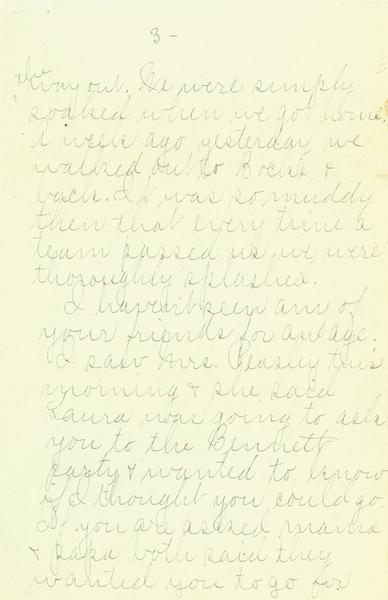 3 -
the
way out. We were simply
soaked when we got home.
A week ago yesterday we
walked out to Bock's &
back. It was so muddy
then that every time a
team passed us we were
thoroughly splashed.
I haven't seen any of
your friends for an age.
I saw Mrs. Beasley this
morning & she said
Laura was going to ask
you to the Bennett
party & wanted to know
if I thought you could go.
If you are asked mama
& papa both said they
wanted you to go for